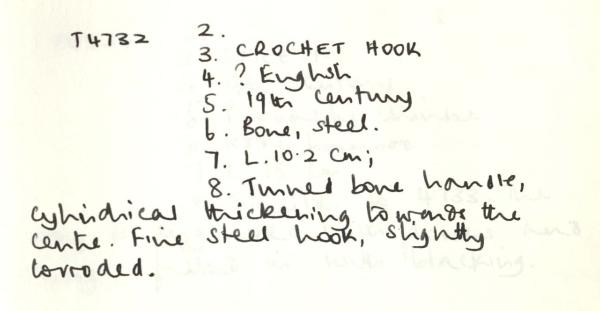 T4732 2.
3. CROCHET HOOK
4. ? English
5. 19th Century
6. Bone, steel.
7. L.10.2 cm;
8. Turned bone handle,
cylindrical thickening towards the
centre. Fine steel hook, slightly
corroded.